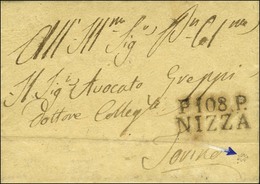 All' Ill.mo Sig.r P.n Col.mo
Il Sig.r Avocato Greppi
Dottore Colleg.to
P.108.P.
NIZZA
Torino